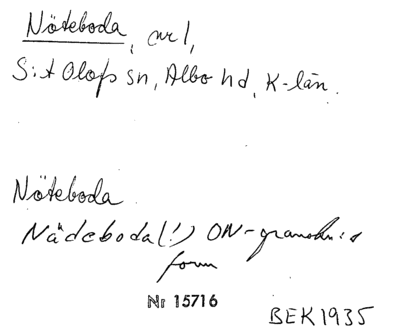 Nöteboda, nr 1,
S:t Olofs sn, Albo hd, K-län.
Nöteboda
Nädeboda(!) ON-granskn:s
form
Nr 15716
BEK1935